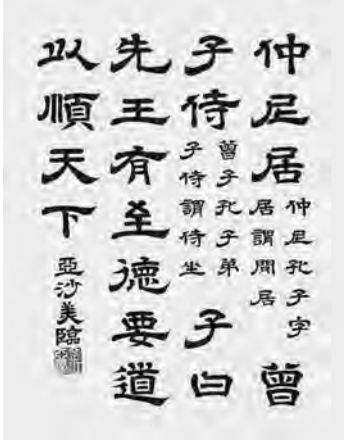 仲尼居
仲尼孔子字
居謂閒居
曾
子侍
曾子孔子弟
子侍謂侍坐
子曰
先王有至德要道
以順天下
亞沙美臨